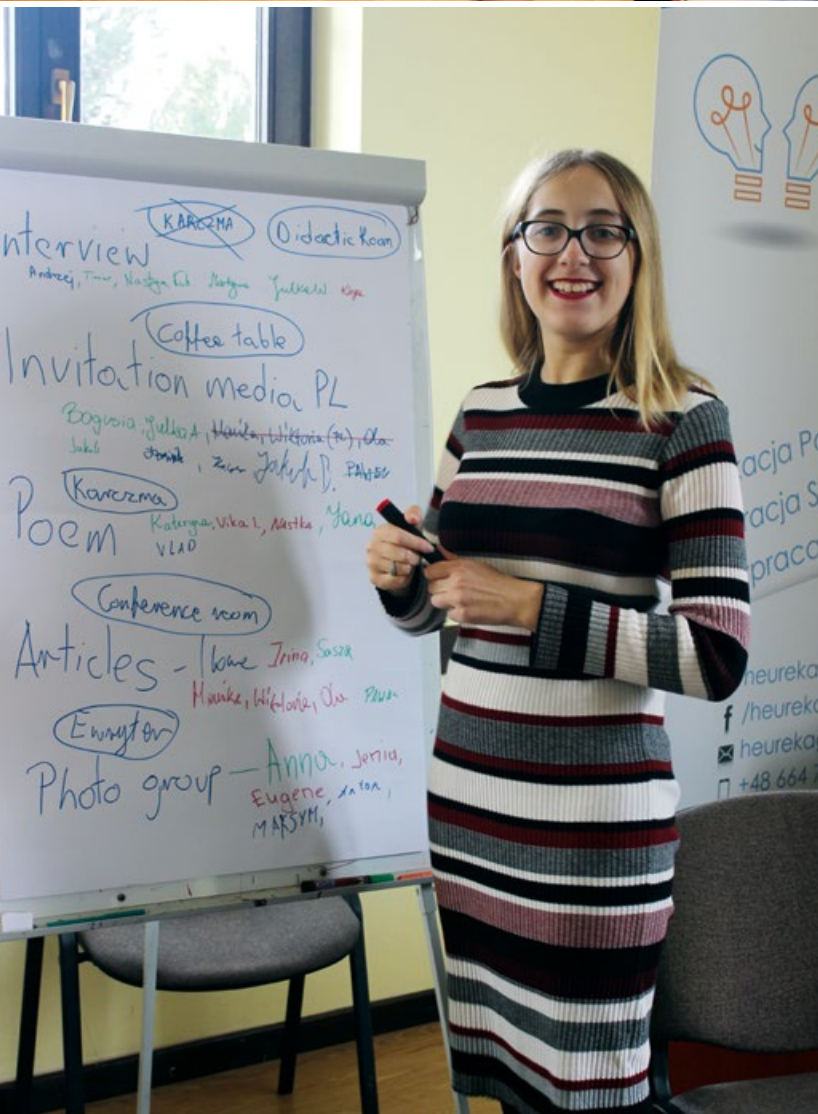 KARCZMA
Didactic Room
nterview
Andrzej, Timur, Nastya
Coffee table
Invitation media PL
Bogusia, Julka A, Monika, Wiktoria (PL), Ola
Jakub
Jakub B. PAWEŁ
Karczma
Poem
Kateryna, Vika L, Nastka, Yana
VLAD
Conference room
Articles - Irina, Sasza
Monika, Wiktoria, Ola
Photo group - Anna, Jenia,
Eugene, Anton,
MAKSYM,
acja Po
racja S
praca
heureka
/heureka
heureka
+48 664 7